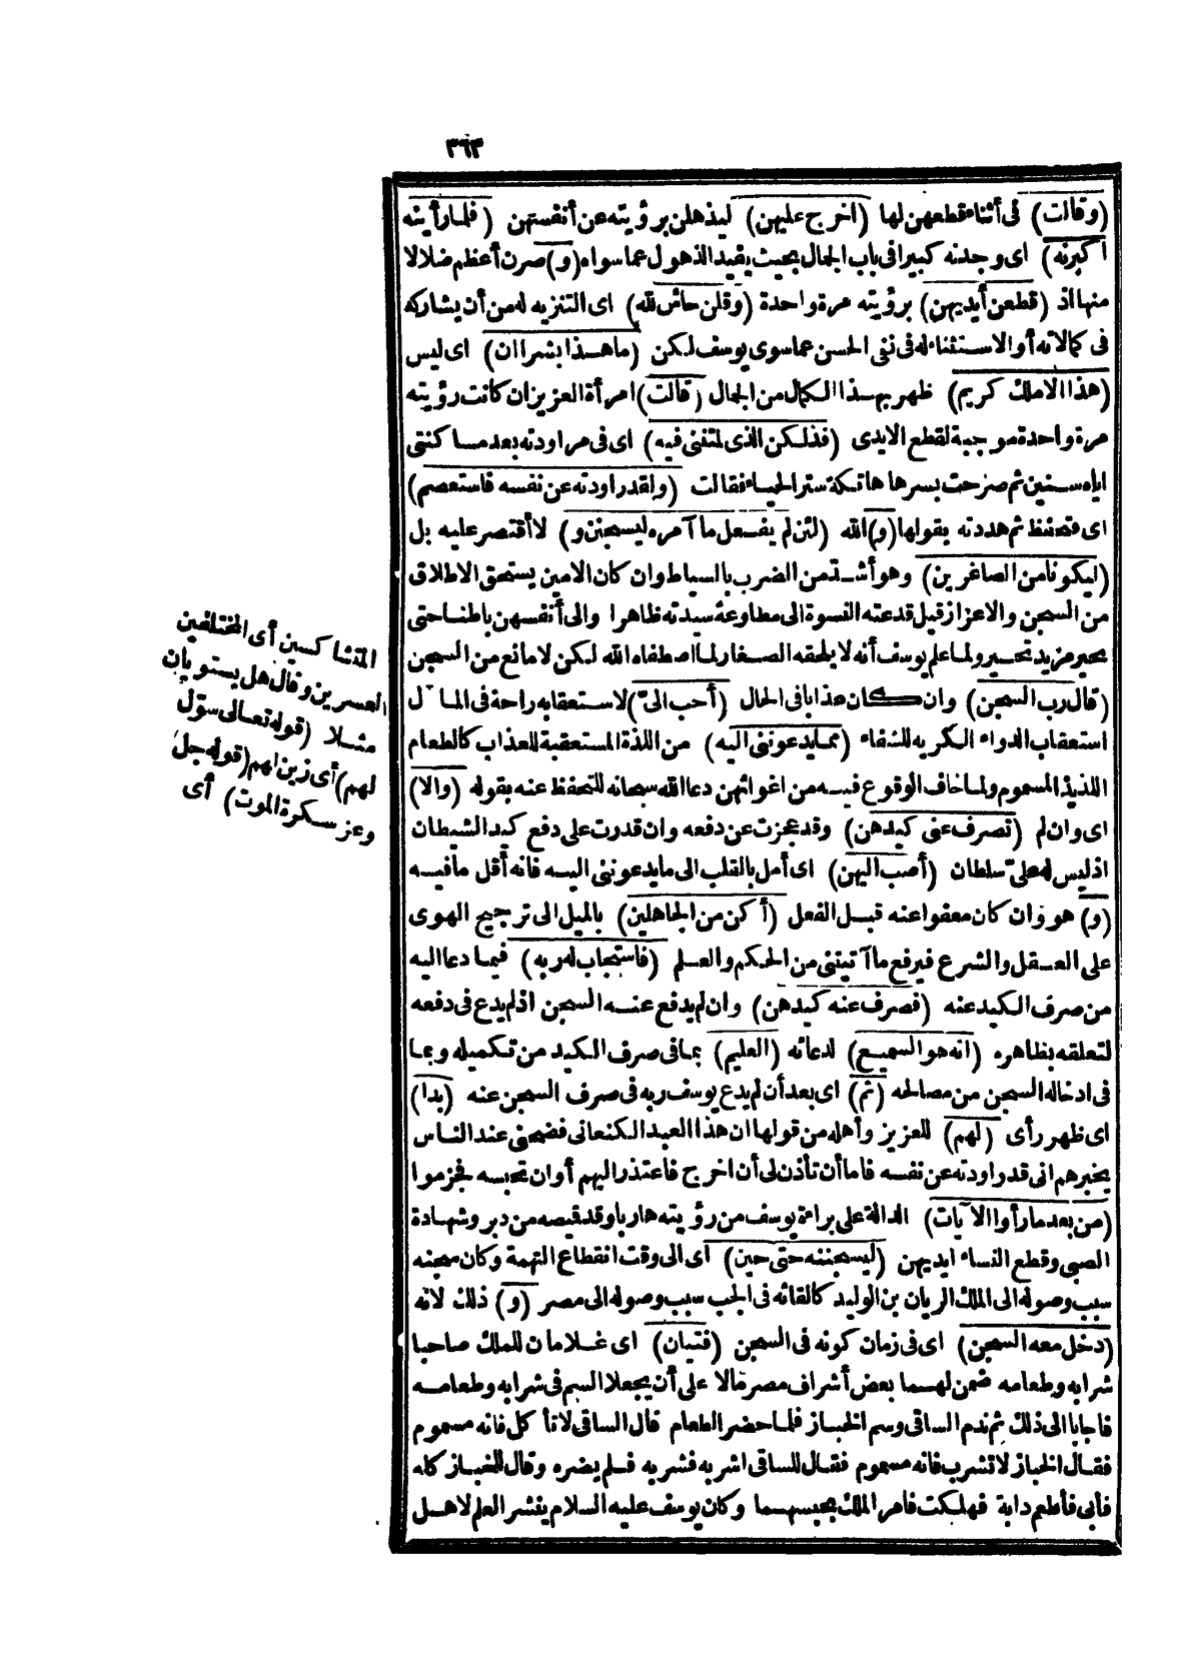 ٣٦٣
(وقالت) فى أثناء قطعهن لها (اخرج عليهن) ليذهلن برؤيته عن أنفسهن (فلما رأينه
أكبرنه) اى وجدنه كبيرا فى باب الجمال بحيث يفيد الذهول عما سواه (و) صرن أعظم ضلالا
منها اذ (قطعن أيديهن) برؤيته مرة واحدة (وقلن حاش لله) اى التنزيه له من أن يشاركه
فى كمالاته أو الاستثناء له فى نفى الحسن عما سوى يوسف لكن (ما هذا بشرا ان) اى ليس
(هذا الا ملك كريم) ظهر بهذا الكمال من الجمال (قالت) امرأة العزيز ان كانت رؤيته
مرة واحدة موجبة لقطع الايدى (فذلكن الذى لمتننى فيه) اى فى مراودته بعد مساكنتى
اياه سنين ثم صرحت بسرها هاتكة ستر الحياء فقالت (ولقد راودته عن نفسه فاستعصم)
اى فتحفظ ثم هددته بقولها (و) الله (لئن لم يفعل ما آمره ليسجنن و) لا أقتصر عليه بل
(ليكونا من الصاغرين) وهو أشد من الضرب بالسياط وان كان الامين يستحق الاطلاق
من السجن والاعزاز قيل قد دعته النسوة الى مطاوعة سيدته ظاهرا والى أنفسهن باطنا حتى
تحير مزيد تحير ولما علم يوسف أنه لا يلحقه الصغار لما اصطفاه الله لكن لا مانع من السجن
(قال رب السجن) وان كان عذابا فى الحال (أحب الىّ) لاستعقابه راحة فى المآل
استعقاب الدواء الكريه للشفاء (مما يدعوننى اليه) من اللذة المستعقبة للعذاب كالطعام
اللذيذ المسموم ولما خاف الوقوع فيه من اغوائهن دعا الله سبحانه للتحفظ عنه بقوله (والا)
اى وان لم (تصرف عنى كيدهن) وقد عجزت عن دفعه وان قدرت على دفع كيد الشيطان
اذ ليس له علىّ سلطان (أصب اليهن) اى أمل بالقلب الى ما يدعوننى اليه فانه أقل ما فيه
(و) هو وان كان معفوا عنه قبل الفعل (أكن من الجاهلين) بالميل الى ترجيح الهوى
على العقل والشرع فيرفع ما آتيتنى من الحكم والعلم (فاستجاب له ربه) فيما دعا اليه
من صرف الكيد عنه (فصرف عنه كيدهن) وان لم يدفع عنه السجن اذ لم يدع فى دفعه
لتعلقه بظاهره (انه هو السميع) لدعائه (العليم) بما فى صرف الكيد من تكميله وبما
فى ادخاله السجن من مصالحه (ثم) اى بعد أن لم يدع يوسف ربه فى صرف السجن عنه (بدا)
اى ظهر رأى (لهم) للعزيز وأهله من قولها ان هذا العبد الكنعانى فضحنى عند الناس
يخبرهم انى قد راودته عن نفسه فاما أن تأذن لى أن اخرج فاعتذر اليهم أو ان تحبسه فجزموا
(من بعد ما رأوا الآيات) الدالة على براءة يوسف من رؤيته هاربا وقد قميصه من دبر وشهادة
الصبى وقطع النساء ايديهن (ليسجننه حتى حين) اى الى وقت انقطاع التهمة وكان سجنه
سبب وصوله الى الملك الريان بن الوليد كالقائه فى الجب سبب وصوله الى مصر (و) ذلك لانه
(دخل معه السجن) اى فى زمان كونه فى السجن (فتيان) اى غلامان للملك صاحبا
شرابه وطعامه ضمن لهما بعض أشراف مصر مالا على أن يجعلا السم فى شرابه وطعامه
فاجابا الى ذلك ثم ندم الساقى وسم الخباز فلما حضر الطعام قال الساقى لا تأكل فانه مسموم
فقال الخباز لا تشرب فانه مسموم فقال للساقى اشربه فشربه فلم يضره وقال للخباز كله
فأبى فأطعم دابة فهلكت فامر الملك بحبسهما وكان يوسف عليه السلام ينشر العلم لاهل
المتشاكسين أى المختلفين
العسرين وقال هل يستويان
مثلا (قوله تعالى سوّل
لهم) أى زين لهم (قوله جل
وعز سكرة الموت) أى